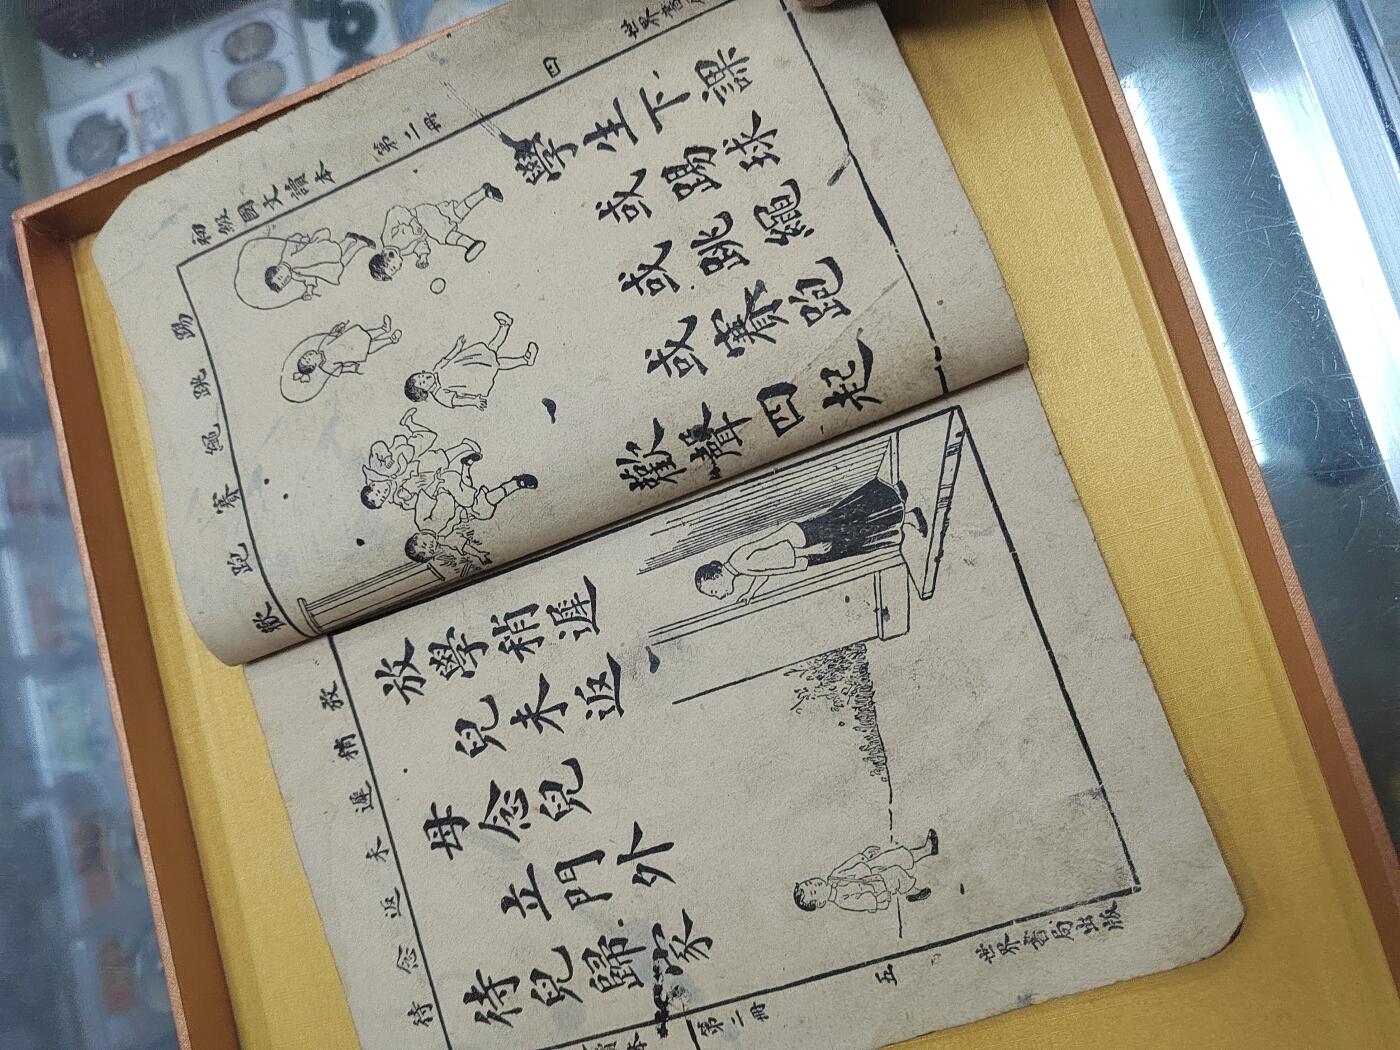 初級國文讀本 第二冊 四 世界書局
踢 跳 繩 賽 跑 歡
學生下課
或踢球
或跳繩
或賽跑
歡聲四起
放 稍 遲 未 返 念 待
放學稍遲
兒未返
母念兒
立門外
待兒歸家
讀本 第二冊 五 世界書局出版